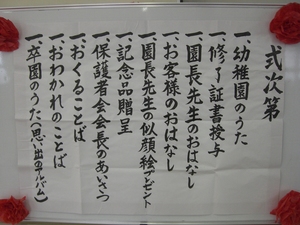 式次第
一、幼稚園のうた
一、修了証書授与
一、園長先生のおはなし
一、お客様のおはなし
一、園長先生の似顔絵プレゼント
一、記念品贈呈
一、保護者会会長のあいさつ
一、おくることば
一、おわかれのことば
一、卒園のうた（思い出のアルバム）